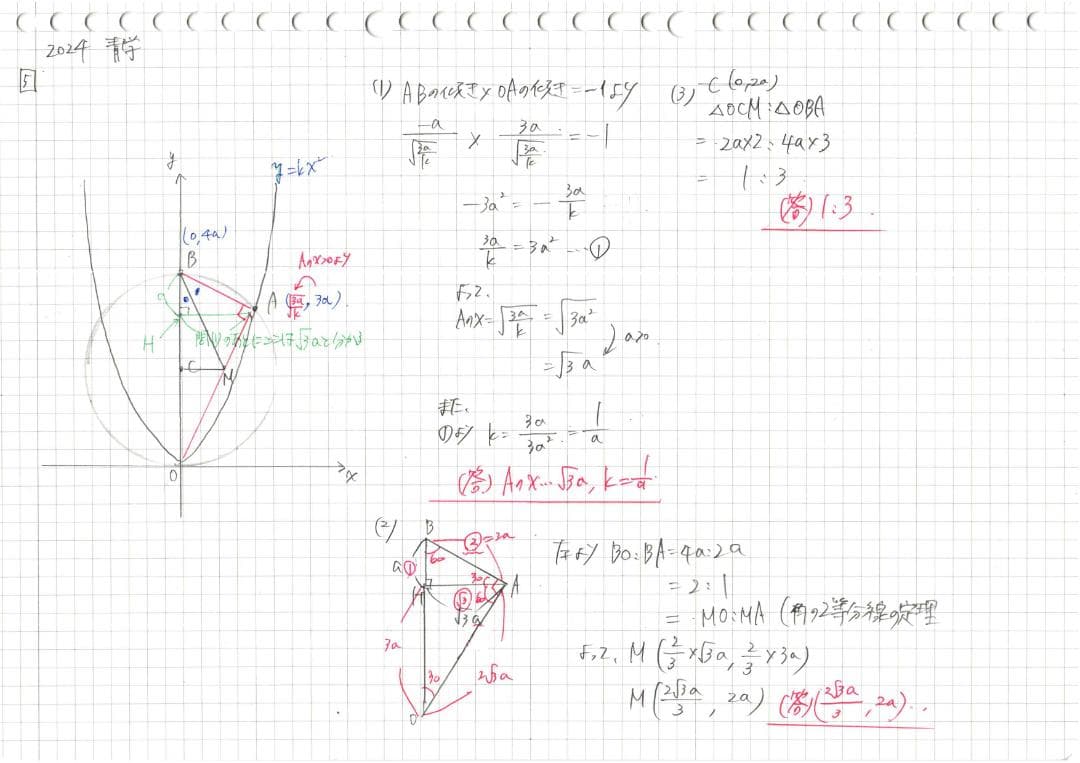 2024 青学
5
y
y=kx²
(0,4a)
B
Aのx>0より
A (√(3a/k), 3a)
a
H
問(1)のあとにここは√3aと分かる
C
M
O
x
(1) ABの傾き×OAの傾き=-1より
-a/√(3a/k) × 3a/√(3a/k) = -1
-3a² = -3a/k
3a/k = 3a² …①
よって、
Aのx=√(3a/k) = √3a²
a>0
=√3 a
また、
①より k= 3a/3a² = 1/a
(答) Aのx…√3a, k=1/a
(2)
B
②=2a
a①
60
30
A
H
√3
60
√3a
3a
30
2√3a
O
左より BO:BA=4a:2a
=2:1
=MO:MA (角の2等分線の定理
よって、M(2/3×√3a, 2/3×3a)
M(2√3a/3, 2a) (答)(2√3a/3, 2a)..
(3) C(0,2a)
△OCM:△OBA
= 2a×2:4a×3
= 1:3
(答) 1:3.